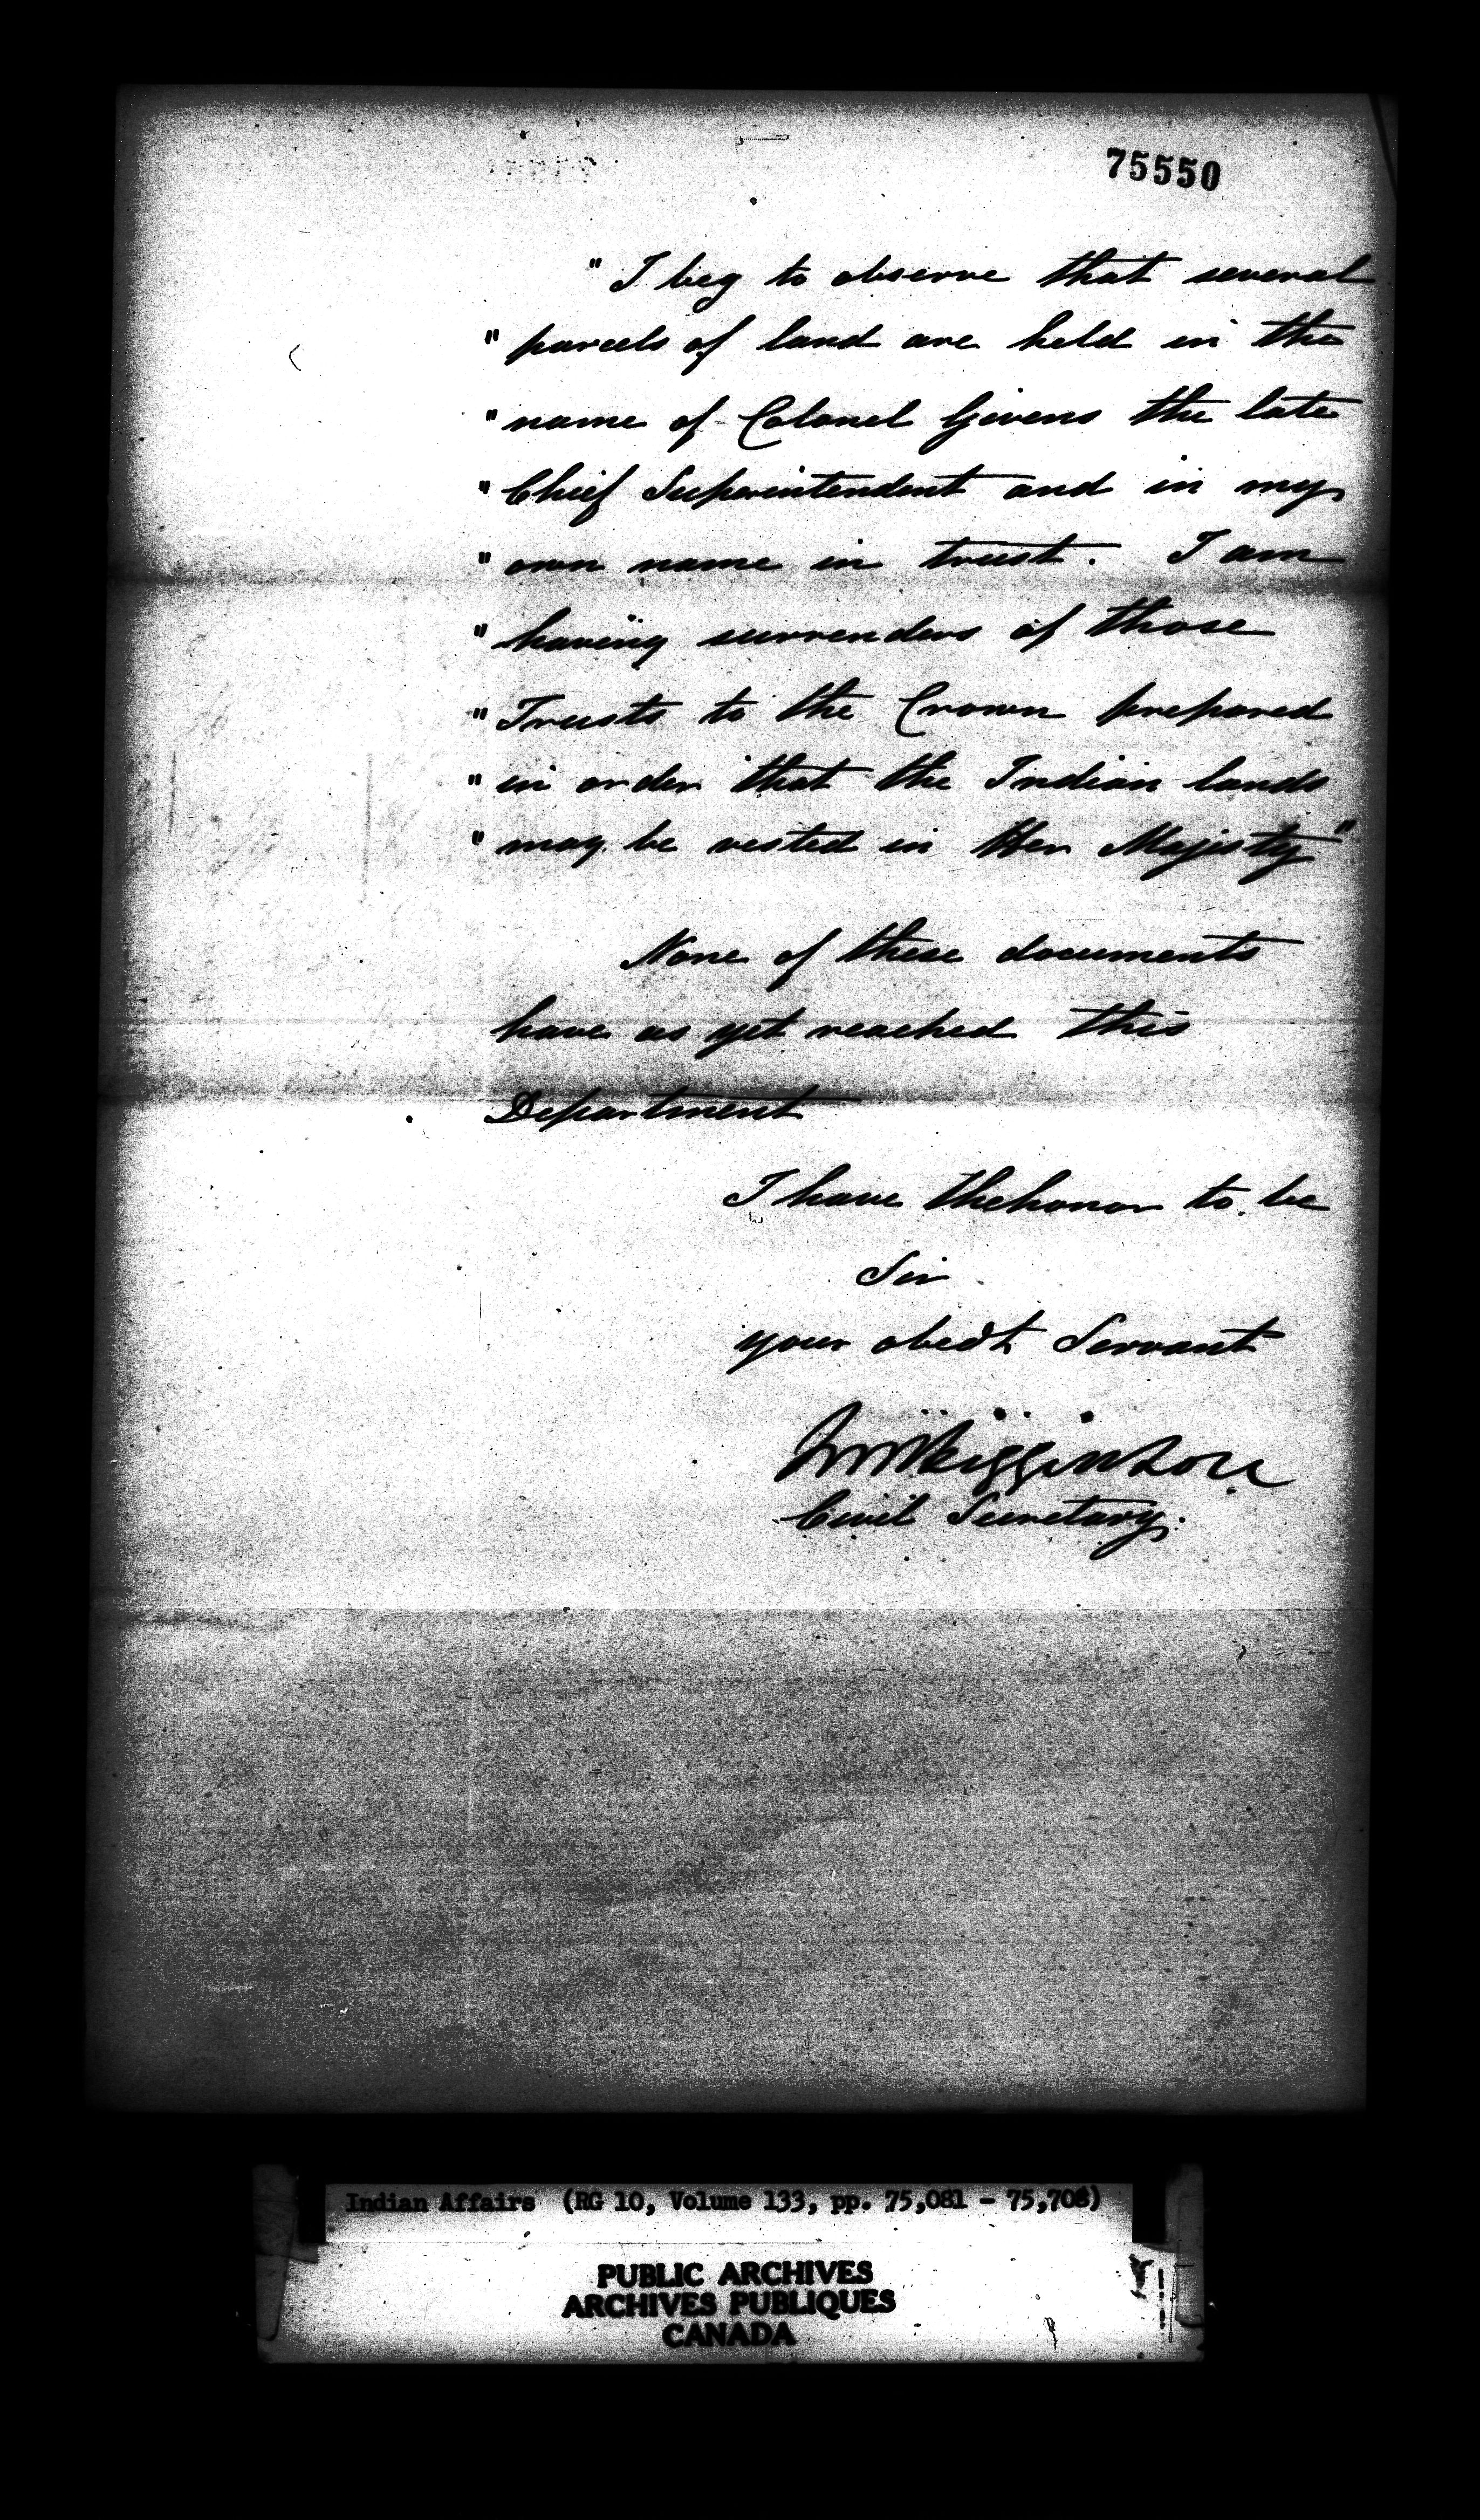 75550
"I beg to observe that several
"parcels of land are held in the
"name of Colonel Givens the late
"Chief Superintendent and in my
"own name in trust. I am
"having surrenders of those
"Trusts to the Crown prepared
"in order that the Indian lands
"may be vested in Her Majesty"
None of these documents
have as yet reached this
Department
I have the honor to be
Sir
your obedt Servant
Higginson
Civil Secretary.
Indian Affairs (RG 10, Volume 133, pp. 75,081 - 75,708)
PUBLIC ARCHIVES
ARCHIVES PUBLIQUES
CANADA